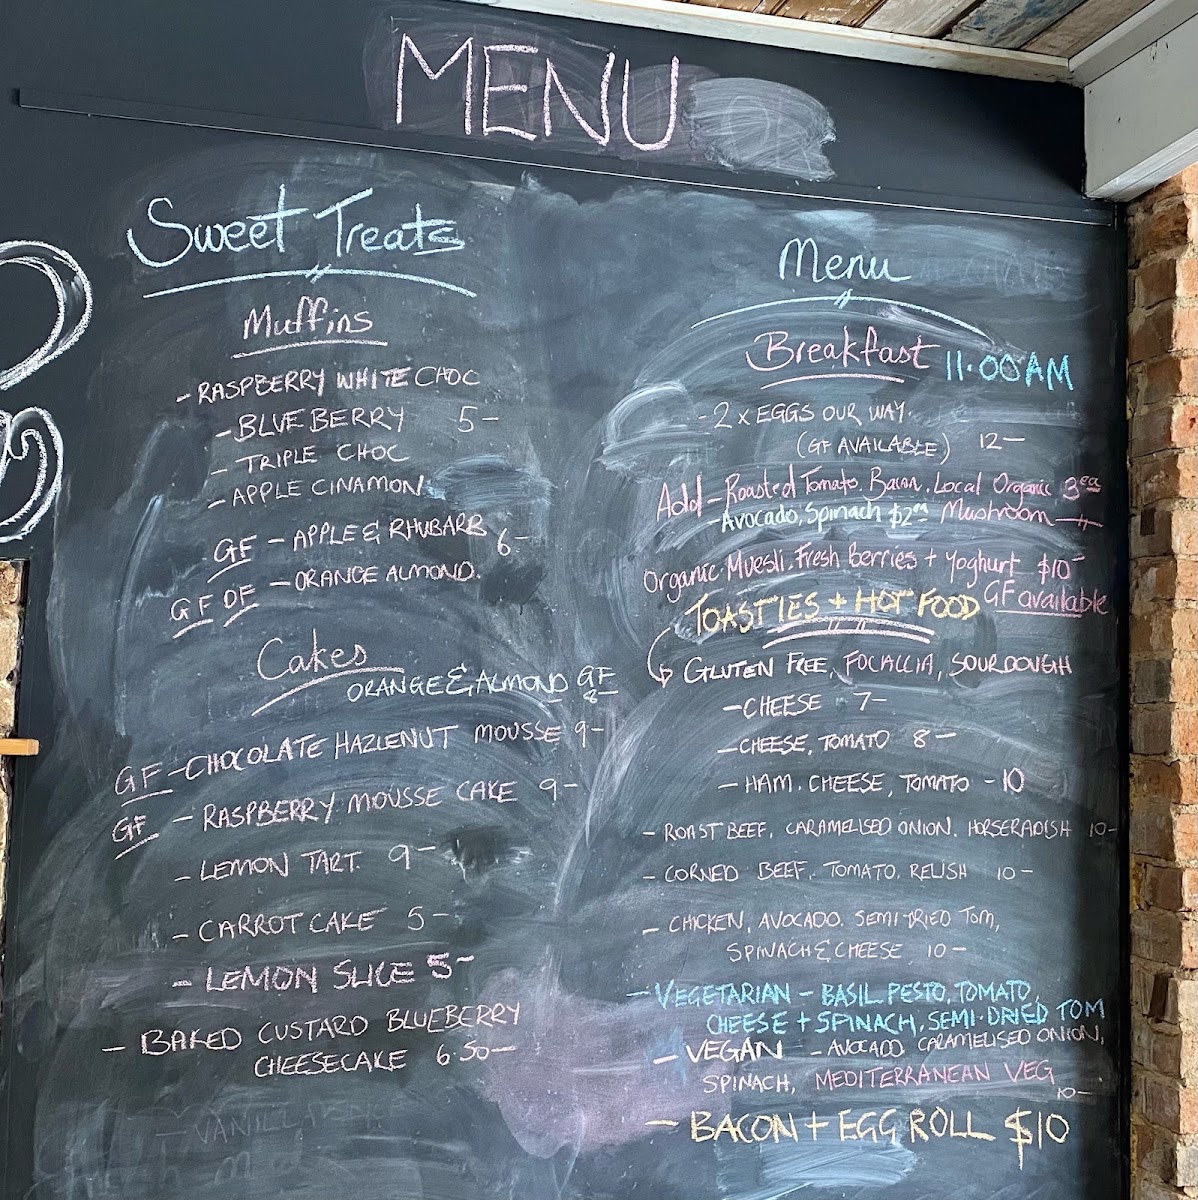 MENU
Sweet Treats
Muffins
- RASPBERRY WHITE CHOC
- BLUEBERRY 5-
- TRIPLE CHOC
- APPLE CINAMON
GF - APPLE & RHUBARB 6-
GF DF - ORANGE ALMOND.
Cakes
ORANGE & ALMOND GF
8-
GF - CHOCOLATE HAZLENUT MOUSSE 9-
GF - RASPBERRY MOUSSE CAKE 9-
- LEMON TART. 9-
- CARROT CAKE 5-
- LEMON SLICE 5-
- BAKED CUSTARD BLUEBERRY
CHEESECAKE 6.50-
- VANILL
Menu
Breakfast 11.00AM
- 2 x EGGS OUR WAY.
(GF AVAILABLE) 12-
Add - Roasted Tomato, Bacon, Local Organic 3ea
Avocado, Spinach $2ea Mushroom
Organic Muesli, Fresh Berries + Yoghurt $10-
GF available
TOASTIES + HOT FOOD
GLUTEN FREE, FOCALLIA, SOURDOUGH
- CHEESE 7-
- CHEESE, TOMATO 8-
- HAM. CHEESE, TOMATO - 10
- ROAST BEEF, CARAMELISED ONION. HORSERADISH 10-
- CORNED BEEF, TOMATO, RELISH 10-
- CHICKEN, AVOCADO. SEMI-DRIED TOM,
SPINACH & CHEESE 10-
- VEGETARIAN - BASIL PESTO, TOMATO,
CHEESE + SPINACH, SEMI-DRIED TOM
- VEGAN - AVOCADO, CARAMELISED ONION,
SPINACH, MEDITERRANEAN VEG
10-
- BACON + EGG ROLL $10